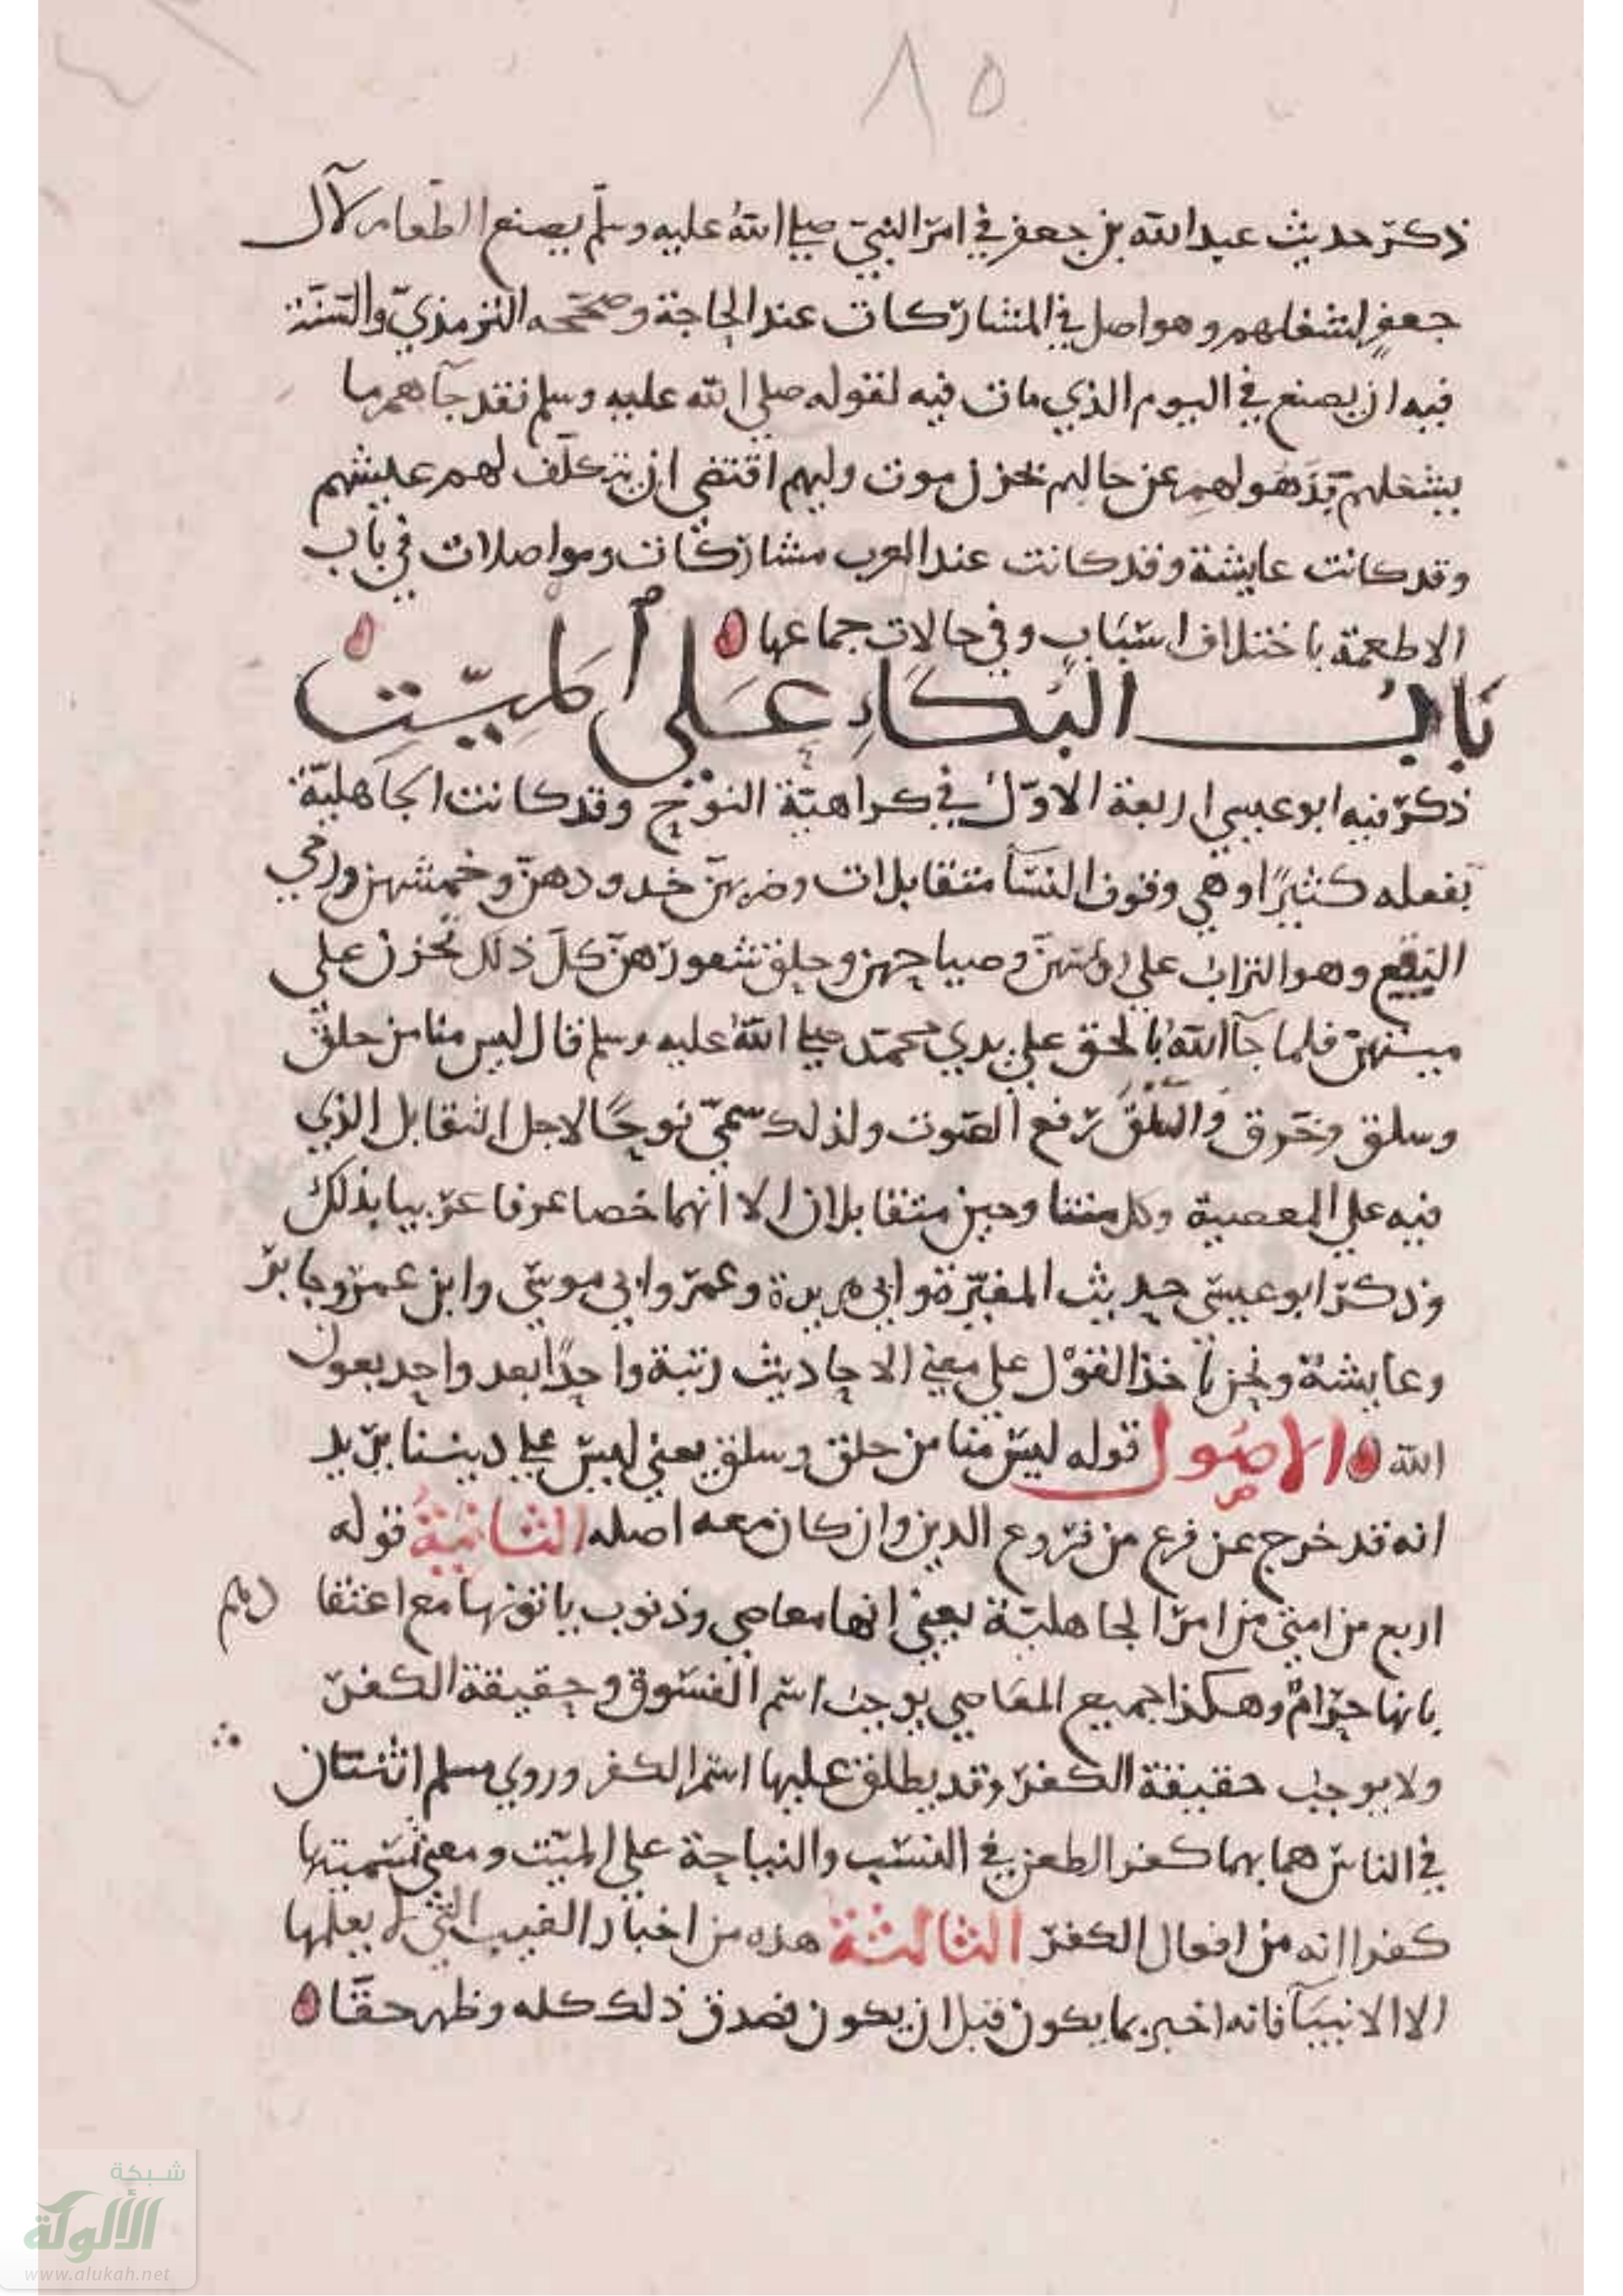 ٨٥
ذكر حديث عبد الله بن جعفر في امر النبي صلى الله عليه وسلم يصنع الطعام لآل
جعفر لشغلهم وهو اصل في المشاركات عند الحاجة وصححه الترمذي والسنة
فيه ان يصنع في اليوم الذي مات فيه لقوله صلى الله عليه وسلم فقد جآهم ما
يشغلهم فذهولهم عن حالهم بحزن موت وليهم اقتضى ان يتكلف لهم عيشهم
وقد كانت عايشة وقد كانت عند العرب مشاركات ومواصلات في باب
الاطعمة باختلاف اسباب وفي حالات جماعها
باب البكاء على الميت
ذكر فيه ابو عيسى اربعة الاول في كراهية النوح وقد كانت الجاهلية
تفعله كثيرا وهي وقوف النسآ متقابلات وضربهن خدودهن وخمشهن ورمي
النقع وهو التراب على رؤسهن وصياحهن وحلق شعورهن كل ذلك تحزن على
ميتهن فلما جآ الله بالحق على يدي محمد صلى الله عليه وسلم قال ليس منا من حلق
وسلق وخرق والسلق رفع الصوت ولذلك سمي نوحا لاجل التقابل الذي
فيه على المعصية وكل متناوحين متقابلان الا انهما خصا عرفا عربيا بذلك
وذكر ابو عيسى حديث المغيرة وابي هريرة وعمر وابي موسى وابن عمر وجابر
وعايشة ونحن نأخذ القول على معنى الاحاديث رتبة واحدا بعد واحد بعون
الله الاصول قوله ليس منا من حلق وسلق يعني ليس على ديننا يريد
انه قد خرج عن فرع من فروع الدين وان كان معه اصله الثانية قوله
اربع من امتي من امر الجاهلية يعني انها معاصي وذنوب ياتونها مع اعتقا دهم
بانها حرام وهكذا جميع المعاصي يوجب اسم الفسوق وحقيقة الكفر
ولا يوجب حقيقة الكفر وقد يطلق عليها اسم الكفر وروي مسلم اثنتان
في الناس هما بهما كفر الطعن في النسب والنياحة على الميت ومعنى تسميتها
كفرا انه من افعال الكفر الثالثة هذه من اخبار الغيب التي لا يعلمها
الا الانبيآ فانه اخبر بما يكون قبل ان يكون فصدق ذلك كله وظهر حقا
شبكة
الألوكة
www.alukah.net